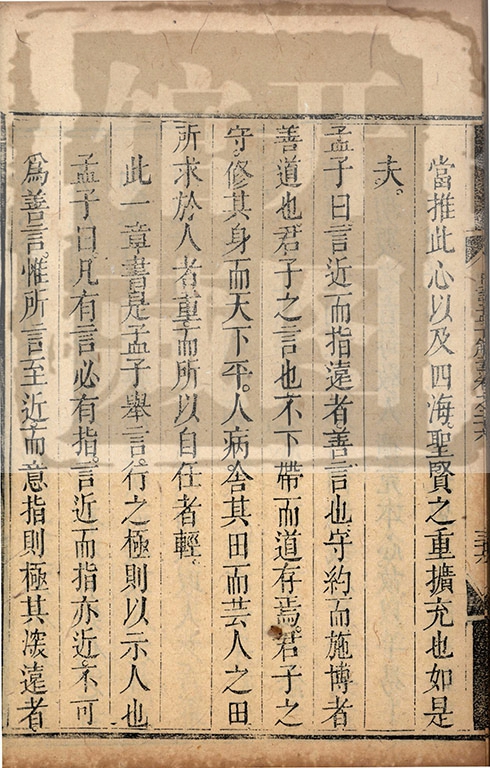 當推此心以及四海。聖賢之重擴充也如是
夫。
孟子曰言近而指遠者善言也守約而施博者
善道也君子之言也不下帶而道存焉。君子之
守。修其身而天下平。人病。舍其田而芸人之田
所求於人者重而所以自任者輕。
此一章書是孟子舉言。行之極則以示人也
孟子曰。凡有言必有指。言近而指亦近不可
爲善言。惟所言至近而意指則極其深遠者